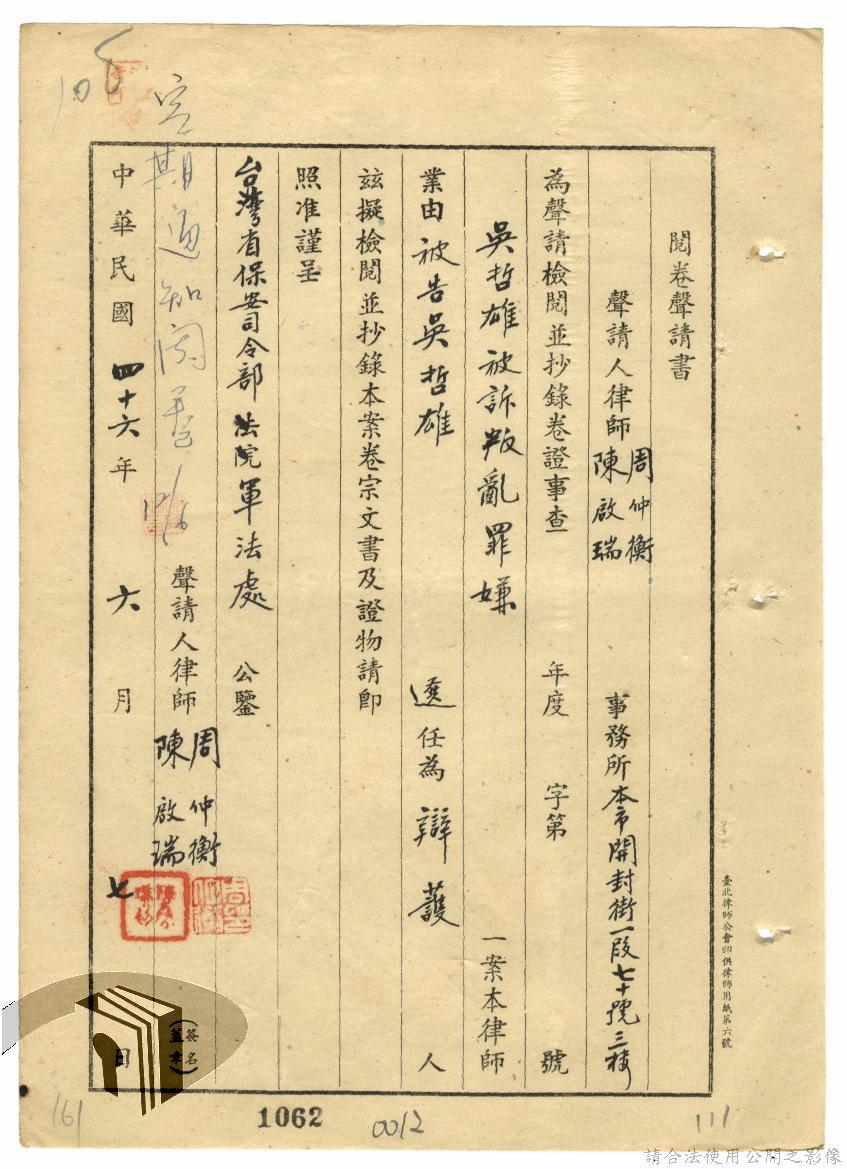 閱卷聲請書
聲請人律師 周仲衡 陳啟瑞 事務所 本市開封街一段七十號三樓
為聲請檢閱並抄錄卷證事查 年度 字第 號
吳哲雄被訴叛亂罪嫌 一案本律師
業由被告吳哲雄 選任為辯護人
玆擬檢閱並抄錄本案卷宗文書及證物請即
照准謹呈
台灣省保安司令部法院軍法處 公鑒
聲請人律師 周仲衡 陳啟瑞 (簽名蓋章)
中華民國四十六年六月七日
定期通知閱卷
臺北律師公會印供律師用紙第六號
161
1062
0012
111
請合法使用公開之影像